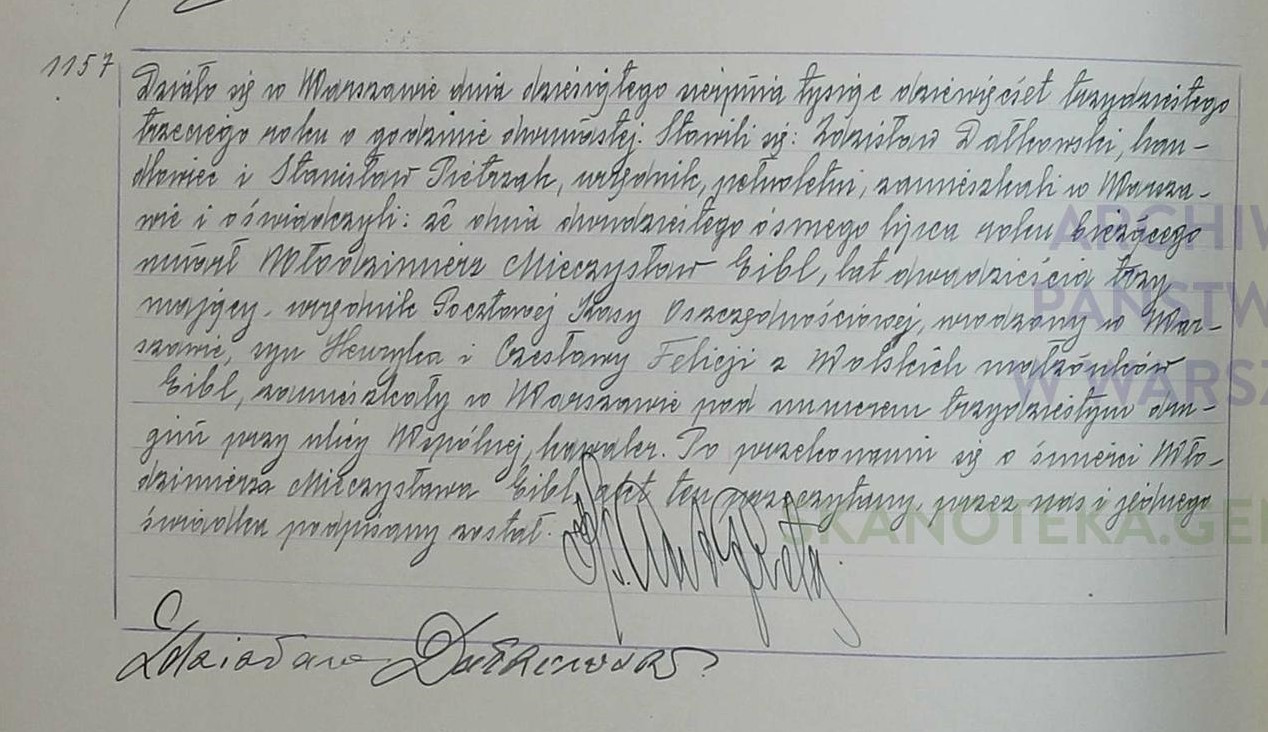 1157
Działo się w Warszawie dnia dziesiątego sierpnia tysiąc dziewięćset trzydziestego
trzeciego roku o godzinie dwunastej. Stawili się: Zdzisław Dałkowski, han-
dlowiec i Stanisław Pietrzak, urzędnik, pełnoletni, zamieszkali w Warsza-
wie i oświadczyli: że dnia dwudziestego ósmego lipca roku bieżącego
umarł Włodzimierz Mieczysław Eibl, lat dwadzieścia trzy
mający, urzędnik Pocztowej Kasy Oszczędnościowej, urodzony w War-
szawie, syn Henryka i Czesławy Felicji z Wolskich małżonków
Eibl, zamieszkały w Warszawie pod numerem trzydziestym dru-
gim przy ulicy Wspólnej, kawaler. Po przekonaniu się o śmierci Wło-
dzimierza Mieczysława Eibl, akt ten przeczytany, przez nas i jednego
świadka podpisany został.
Zdzisław Dałkowski
ARCHIW
PAŃSTW
W WARSZ
SKANOTEKA.GEN